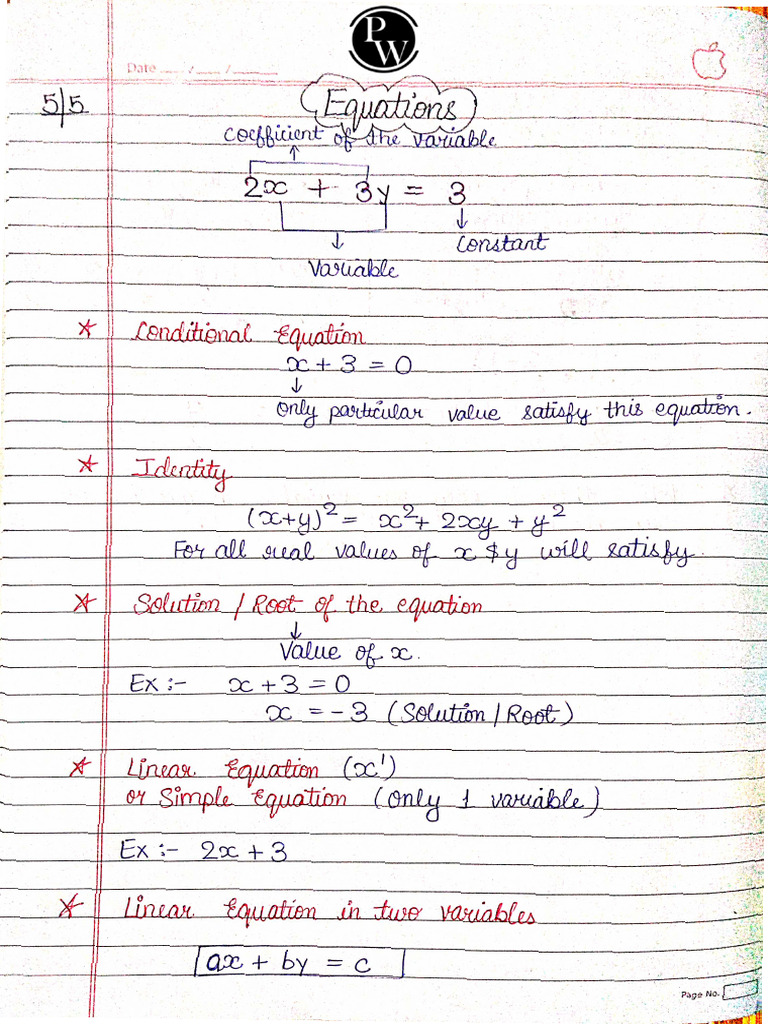 PW
Date ___/___/___
5|5
Equations
Coefficient of the variable
↑
2x + 3y = 3
↓ ↓
Constant
Variable
* Conditional Equation
x + 3 = 0
↓
Only particular value satisfy this equation.
* Identity
(x+y)² = x² + 2xy + y²
For all real values of x & y will satisfy.
* Solution / Root of the equation
↓
Value of x.
Ex :- x + 3 = 0
x = -3 (Solution / Root)
* Linear Equation (x¹)
or Simple Equation (only 1 variable)
Ex :- 2x + 3
* Linear Equation in two variables
ax + by = c
Page No.